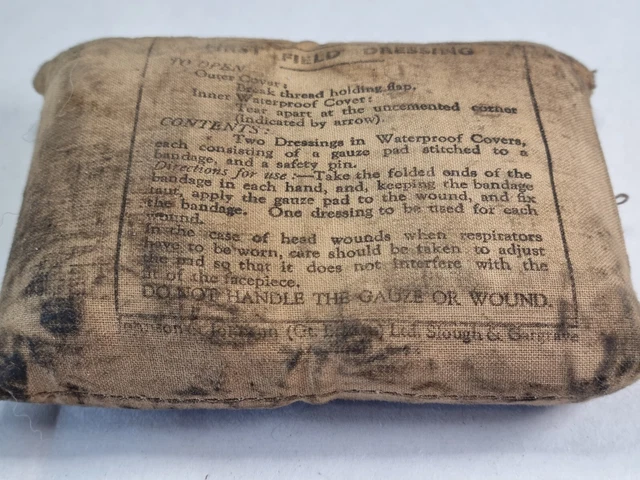 FIRST FIELD DRESSING
TO OPEN
Outer Cover:
Break thread holding flap.
Inner Waterproof Cover:
Tear apart at the uncemented corner
(indicated by arrow).
CONTENTS:
Two Dressings in Waterproof Covers,
each consisting of a gauze pad stitched to a
bandage, and a safety pin.
Directions for use:—Take the folded ends of the
bandage in each hand, and, keeping the bandage
taut, apply the gauze pad to the wound, and fix
the bandage. One dressing to be used for each
wound.
In the case of head wounds when respirators
have to be worn, care should be taken to adjust
the pad so that it does not interfere with the
fit of the facepiece.
DO NOT HANDLE THE GAUZE OR WOUND.
Johnson & Johnson (Gt. Britain) Ltd. Slough & Gargrave